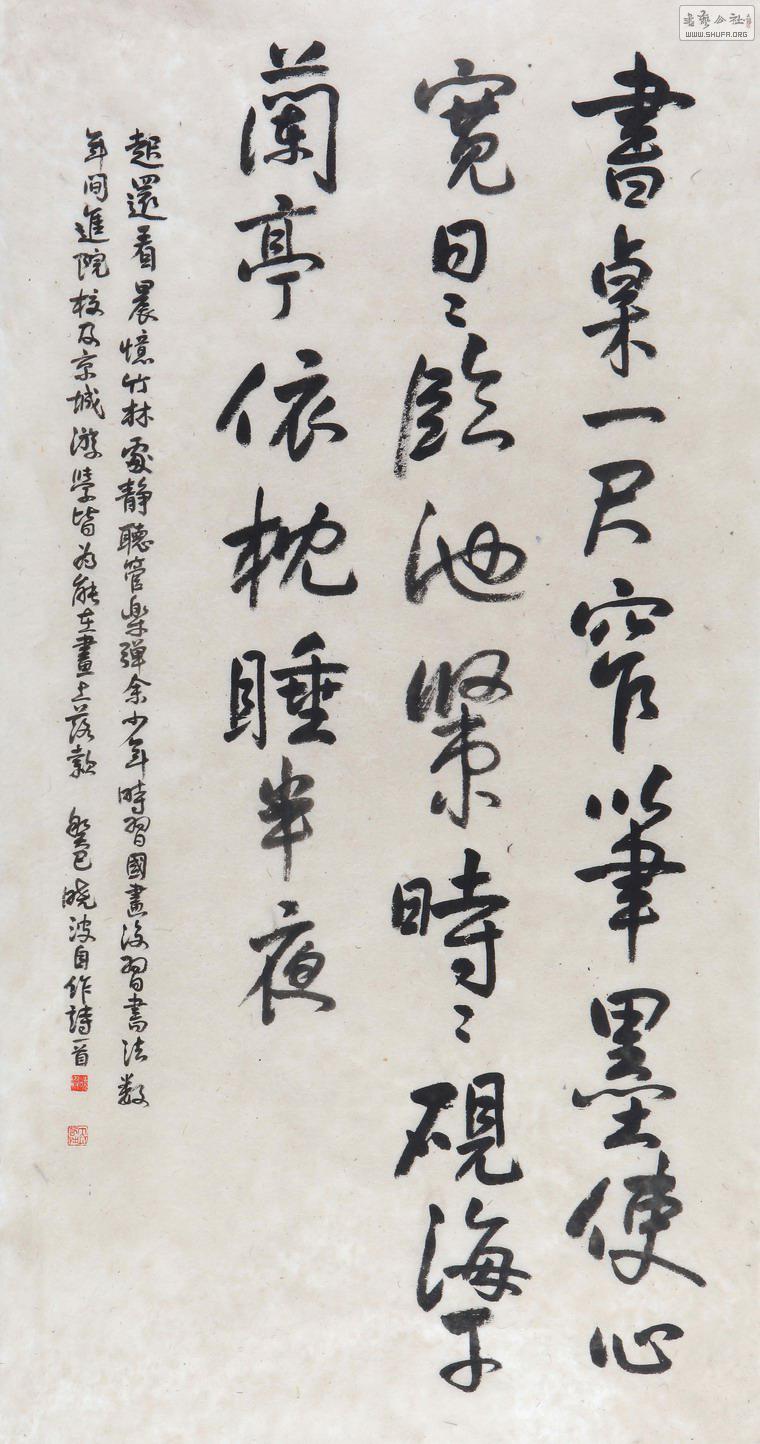 書桌一尺窄筆墨使心
寬日〻臨池緊時〻硯海干
蘭亭依枕睡半夜
起還看晨憶竹林處靜聽管樂彈余少年時習國畫後習書法数
年间進院校及京城游學皆为能在畫上落款 癸巳晓波自作詩一首
書藝公社
WWW.SHUFA.ORG